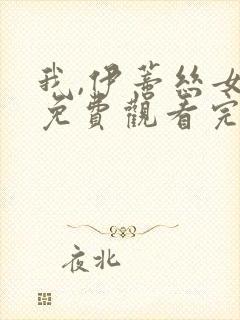 我,伊蕾丝女
免費觀看完
夜北